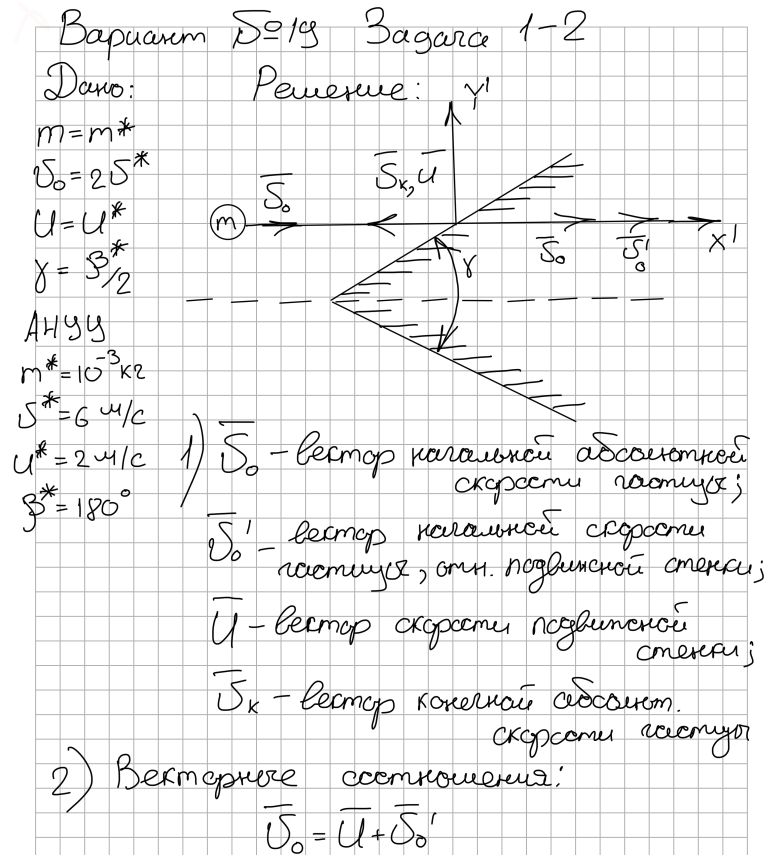 Вариант №19 Задача 1-2
Дано:
Решение:
m = m*
υ₀ = 2υ*
U = U*
γ = β*/2
АНУУ
m* = 10⁻³ кг
υ* = 6 м/с
u* = 2 м/с
β* = 180°
Y'
υ̅ₖ, u̅
υ̅₀
m
υ̅₀
υ̅₀'
X'
γ
1) υ̅₀ – вектор начальной абсолютной
скорости частицы;
υ̅₀' – вектор начальной скорости
частицы, отн. подвижной стенки;
U̅ – вектор скорости подвижной
стенки;
υ̅ₖ – вектор конечной абсолют.
скорости частицы
2) Векторные соотношения:
υ̅₀ = U̅ + υ̅₀'